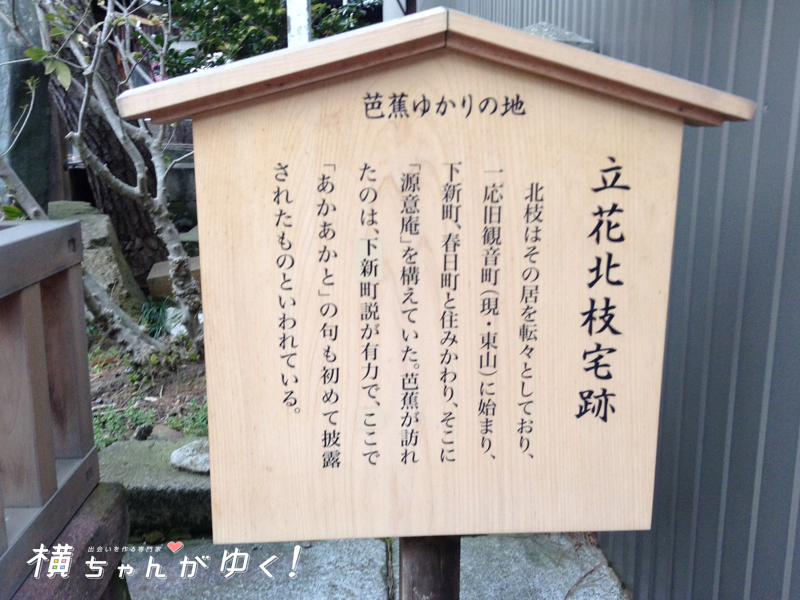 芭蕉ゆかりの地
立花北枝宅跡
北枝はその居を転々としており、
一応旧観音町（現・東山）に始まり、
下新町、春日町と住みかわり、そこに
「源意庵」を構えていた。芭蕉が訪れ
たのは、下新町説が有力で、ここで
「あかあかと」の句も初めて披露
されたものといわれている。
出会いを作る専門家
横ちゃんがゆく！